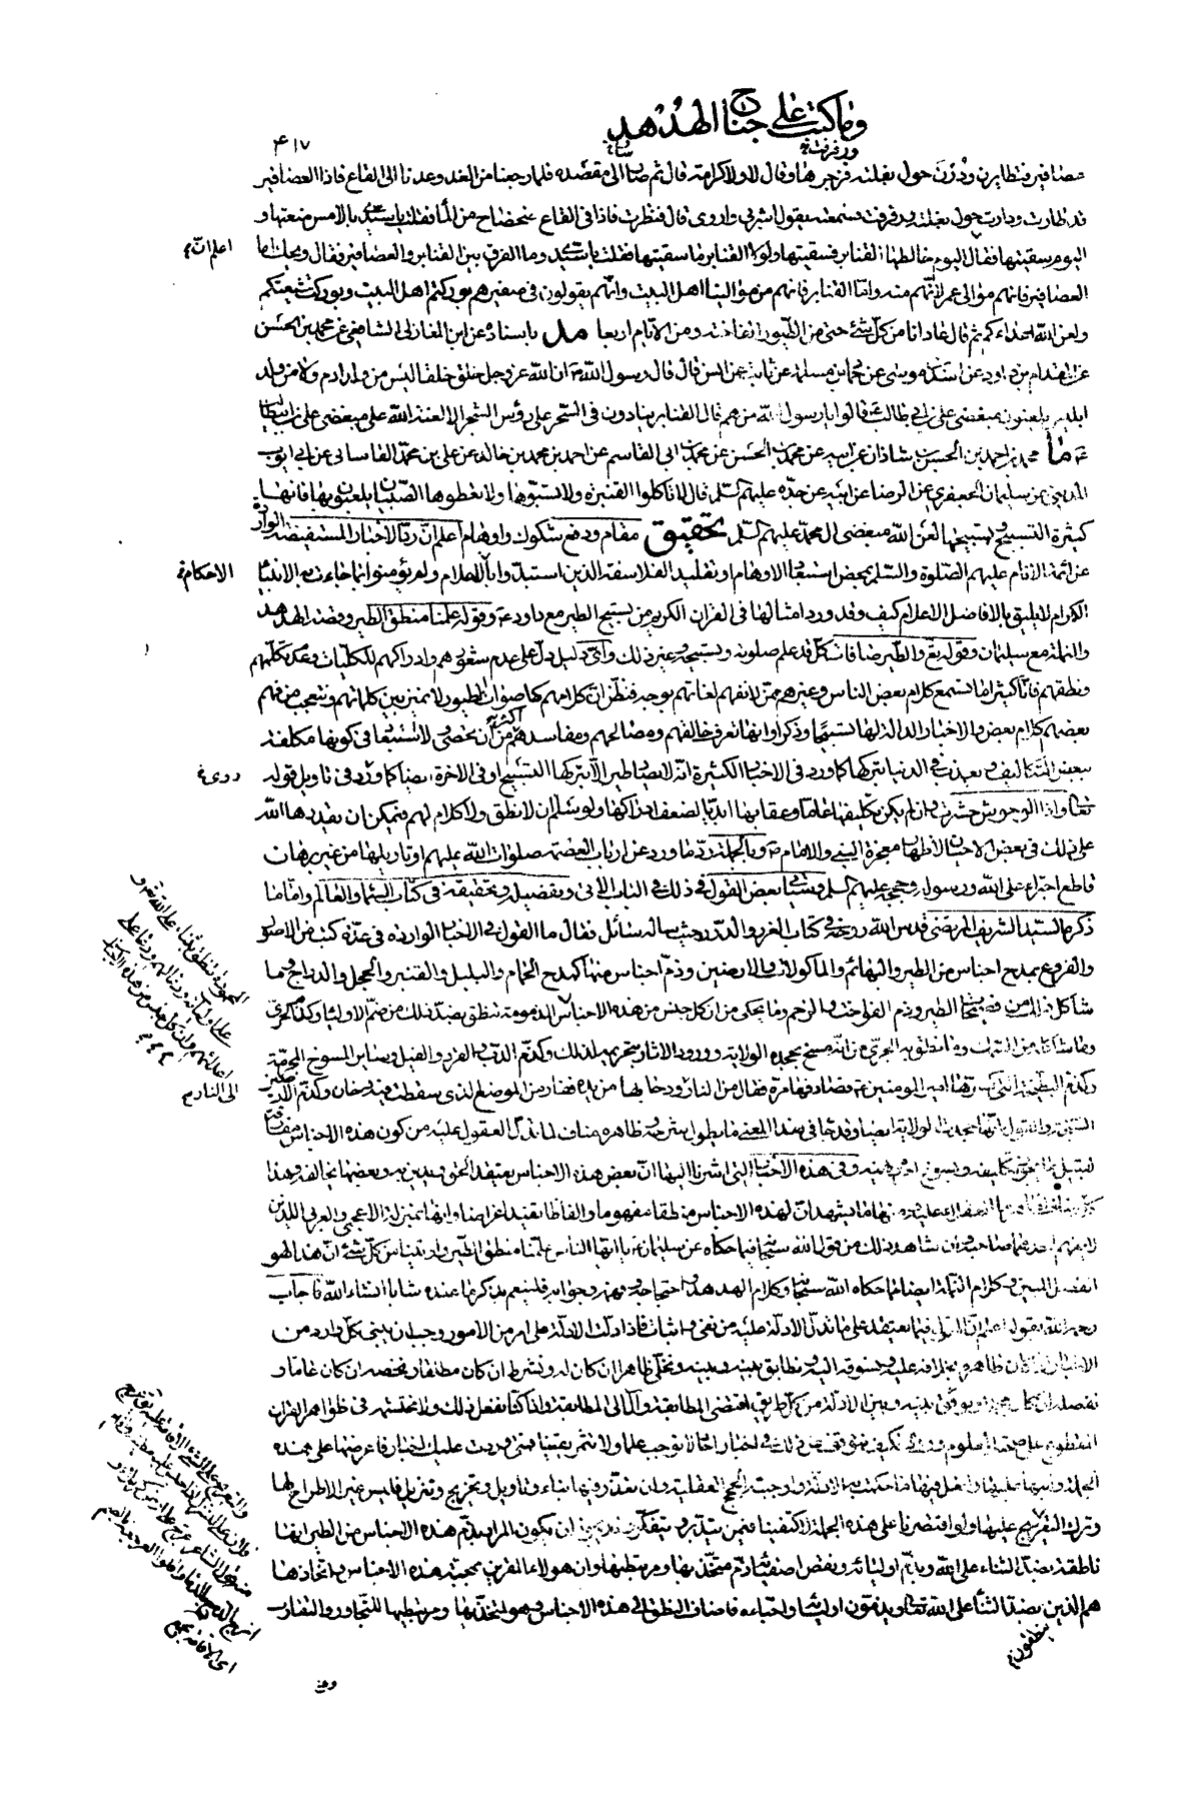 وما كتب على جناح الهدهد
٤١٧
عصافير فتطايرن ودرن حول بغلته فزجرها وقال لا ولا كرامة قال ثم صار الى مقصده فلما رجعنا من الغد وعدنا الى القاع فاذا العصافير
قد طارت ودارت حول بغلته ورفرفت فسمعته يقول اشربي واروي قال فنظرت فاذا في القاع ضحضاح من الماء فقلت يا سيدي بالامس منعتها و
اليوم سقيتها فقال اليوم خالطها القنابر فسقيتها ولولا القنابر ما سقيتها فقلت يا سيدي وما الفرق بين القنابر والعصافير فقال ويحك اما
اعلم ان
العصافير فانهم موالي عمر لانهم منه واما القنابر فانهم من موالينا اهل البيت وانهم يقولون في صفيرهم بوركتم اهل البيت وبوركت شيعتكم
ولعن الله اعداءكم ثم قال عادانا من كل شيء حتى من الطيور الفاختة ومن الايام اربعا مد باسناده عن ابن المغازلي الشافعي عن محمد بن الحسن
قال قال رسول الله ان الله عز وجل خلق خلقا ليس من ولد ادم ولا من ولد
ابليس يلعنون مبغضي علي بن ابي طالب قالوا يا رسول الله من هم قال القنابر ينادون في السحر على رؤس الشجر الا لعنة الله على مبغضي علي بن ابي طالب
محمد بن احمد بن الحسين بن شاذان عن ابيه عن محمد بن الحسن عن محمد بن ابي القاسم عن احمد بن محمد بن خالد عن علي بن محمد القاساني عن ابي ايوب
المديني عن سليمان الجعفري عن الرضا عن ابيه عن جده عليهم السلم قال لا تاكلوا القنبرة ولا تسبوها ولا تعطوها الصبيان يلعبون بها فانها
كثيرة التسبيح وتسبيحها لعن الله مبغضي ال محمد عليهم السلم تحقيق مقام ودفع شكوك واوهام اعلم ان رد الاخبار المستفيضة الواردة
عن ائمة الانام عليهم الصلوة والسلم بمحض استبعاد الاوهام او تقليد الفلاسفة الذين استبدوا بالاحلام ولم يؤمنوا بما جاءت به الانبياء
الاحكام
الكرام لا يليق بالافاضل الاعلام كيف وقد ورد امثالها في القران الكريم من تسبيح الطير مع داود وقوله علمنا منطق الطير وقصة الهدهد
والنملة مع سليمان وقوله تعالى والطير صافات كل قد علم صلوته وتسبيحه وغير ذلك واي دليل دل على عدم شعورهم وادراكهم للكليات وعدم تكلمهم
ونطقهم فانا كثيرا ما نستمع كلام بعض الناس وغيرهم ممن لا نفهم لغاتهم بوجه فنظن ان كلامهم كاصوات الطيور لا نميز بين كلماتهم ونتعجب من فهم
بعضهم كلام بعض والاخبار الدالة لها تسبيحا وذكرا وانها تعرف خالقهم ومصالحهم ومفاسدهم اكثر من ان تحصى ولا استبعاد في كونها مكلفة
ببعض التكاليف وتعذب في الدنيا بتركها كما ورد في الاخبار الكثيرة انه لا يصاد طير الا بتركها التسبيح او في الاخرة ايضا كما ورد في تاويل قوله
روي
تعالى واذا الوحوش حشرت وان لم يكن تكليفها عاما وعقابها ابديا لضعف ادراكها ولو سلم ان لا نطق ولا كلام لهم فيمكن ان يقدرها الله
على ذلك في بعض الاحيان لاظهار معجزة النبي والامام وبالجملة رد ما ورد عن ارباب العصمة صلوات الله عليهم او تاويلها من غير برهان
قاطع اجتراء على الله ورسوله وحججه عليهم السلم وسيأتي بعض القول في ذلك في الباب الاتي وتفصيله وتحقيقه في كتاب السماء والعالم واما ما
ذكره السيد الشريف المرتضى قدس الله روحه في كتاب الغرر والدرر حيث ساله سائل فقال ما القول في الاخبار الواردة في عدة كتب من الاصول
والفروع بمدح اجناس من الطير والبهائم والماكولات والارضين وذم اجناس منها كمدح الحمام والبلبل والقنبر والحجل والدراج وما
شاكل ذلك من فصيحات الطير وذم الفواخت والرخم وما يحكى من ان كل جنس من هذه الاجناس المذمومة تنطق بضد ذلك من ذم الاولياء وكذم الجري
وما شاكله من السمك وما نطق به الجري من انه مسخ بجحده الولاية وورود الاثار بتحريمه لذلك وكذم الدب والقرد والفيل وساير المسوخ المحرمة
وكذم البطيخة التي كسرها امير المومنين فصادفها مرة فقال من النار ودحا بها من يده فصار من الموضع الذي سقطت فيه دخان وكذم الارضين
الى النار
السبخة والقول بانها جحدت الولاية ايضا وقد جاء في هذا المعنى ما يطول شرحه وظاهره مناف لما تدل العقول عليه من كون هذه الاجناس مفارقة
لقبيل ما يجوز تكليفه ويسوغ امره ونهيه وفي هذه الاخبار التي اشرنا اليها ان بعض هذه الاجناس يعتقد الحق ويدين به وبعضها يخالفه وهذا
لهذه الاجناس منطقا مفهوما والفاظا تفيد اغراضا وانها بمنزلة الاعجمي والعربي اللذين
لا يفهم احدهما صاحبه وان شاهد ذلك من قول الله سبحانه فيما حكاه عن سليمان يا ايها الناس علمنا منطق الطير واوتينا من كل شيء ان هذا لهو
الفضل المبين وكلام النملة ايضا مما حكاه الله سبحانه وكلام الهدهد واحتجاجه وفهمه وجوابه فلينعم بذكر ما عنده مثابا انشاء الله فاجاب
رحمه الله بقوله اعلم ان المعول فيما يعتقد على ما تدل الادلة عليه من نفي واثبات فاذا دلت الادلة على امر من الامور وجب ان يبنى كل وارد من
الاخبار اذا كان ظاهره بخلافه عليه ونسوقه اليه ونطابق بينه وبينه ونخلي ظاهرا ان كان له ونشرط ان كان مطلقا ونخصه ان كان عاما و
نفصله ان كان مجملا ونوفق بينه وبين الادلة من كل طريق اقتضى الموافقة وآل الى المطابقة واذا كنا نفعل ذلك ولا نحتشمه في ظواهر القران
المقطوع على صحته المعلوم وروده فكيف نتوقف عن ذلك في اخبار احاد لا توجب علما ولا تثمر يقينا فمتى وردت عليك اخبار فاعرضها على هذه
الجملة وابنها عليها وافعل فيها ما حكمت به الادلة واوجبته الحجج العقلية وان تعذر فيها بناء وتاويل وتخريج وتنزيل فليس غير الاطراح لها
وترك التعريج عليها ولو اقتصرنا على هذه الجملة لاكتفينا فيمن يتدبر ويتفكر وقد يجوز ان يكون المراد بذم هذه الاجناس من الطير انها
ناطقة بضد الثناء على الله وبذم اوليائه ونقص اصفيائه ذم متخذيها ومرتبطيها وان هؤلاء المغرين بمحبة هذه الاجناس واتخاذها
هم الذين بضد الثناء على الله تعالى ويذمون اولياءه واحباءه فاضاف النطق الى هذه الاجناس وهو لمتخذيها ومرتبطيها للتجاور والتقارب
ينطقون